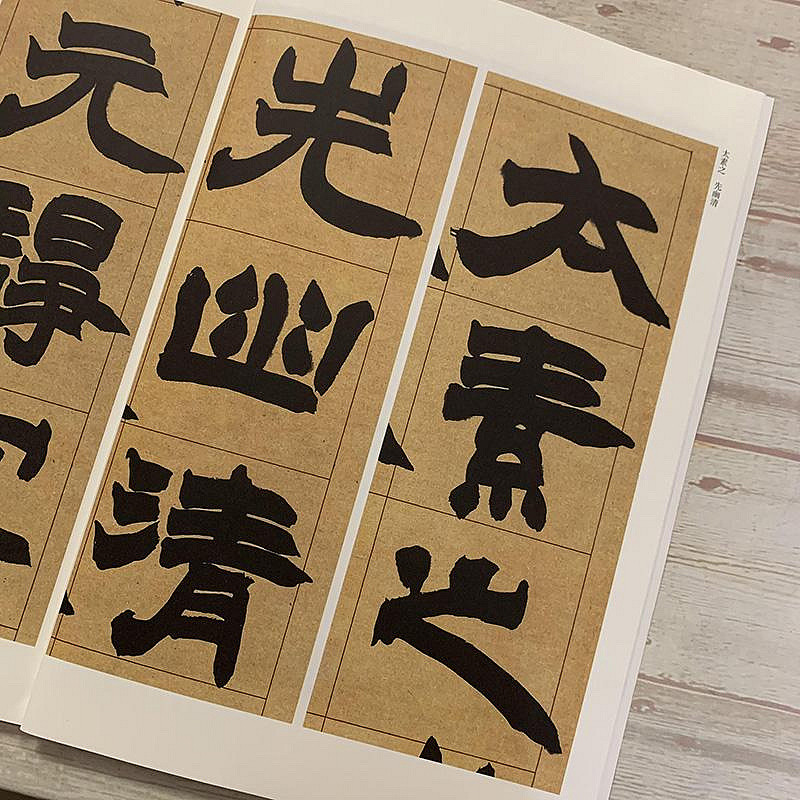 太素之 先幽清
太素之
先幽清
元